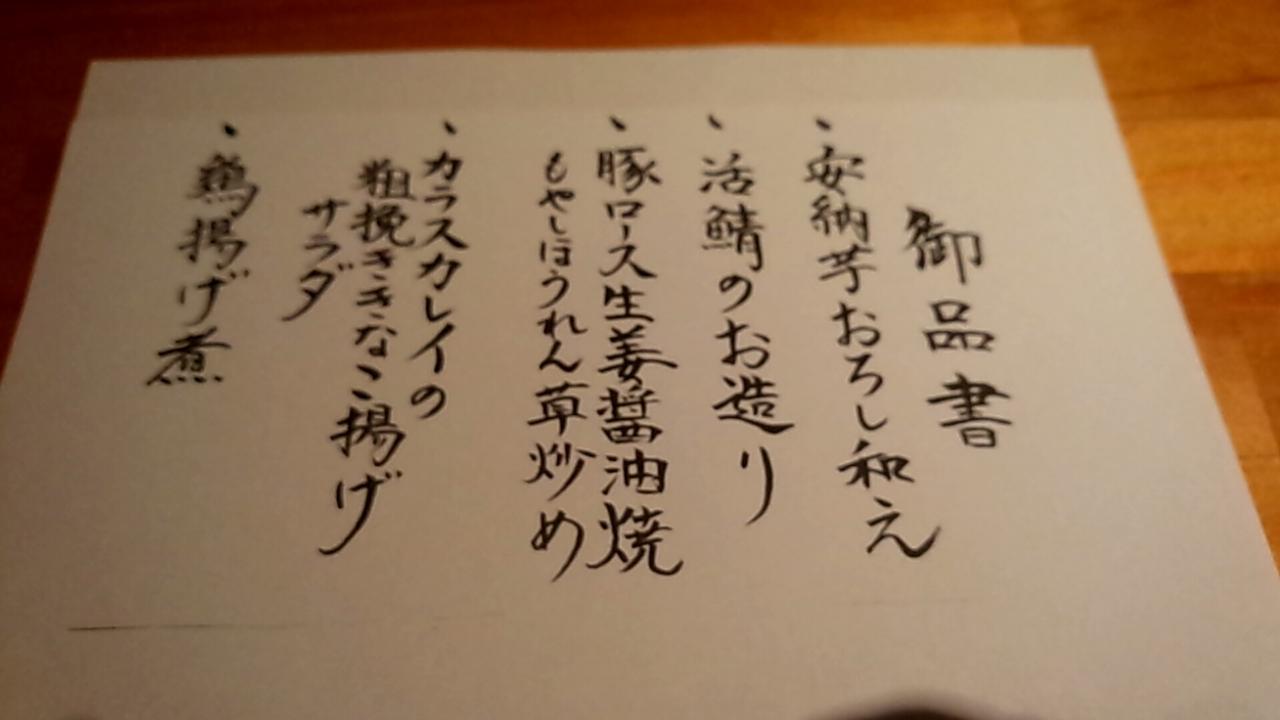 御品書
・安納芋おろし和え
・活鯖のお造り
・豚ロース生姜醤油焼
もやしほうれん草炒め
・カラスカレイの
粗挽ききなこ揚げ
サラダ
・鶏揚げ煮